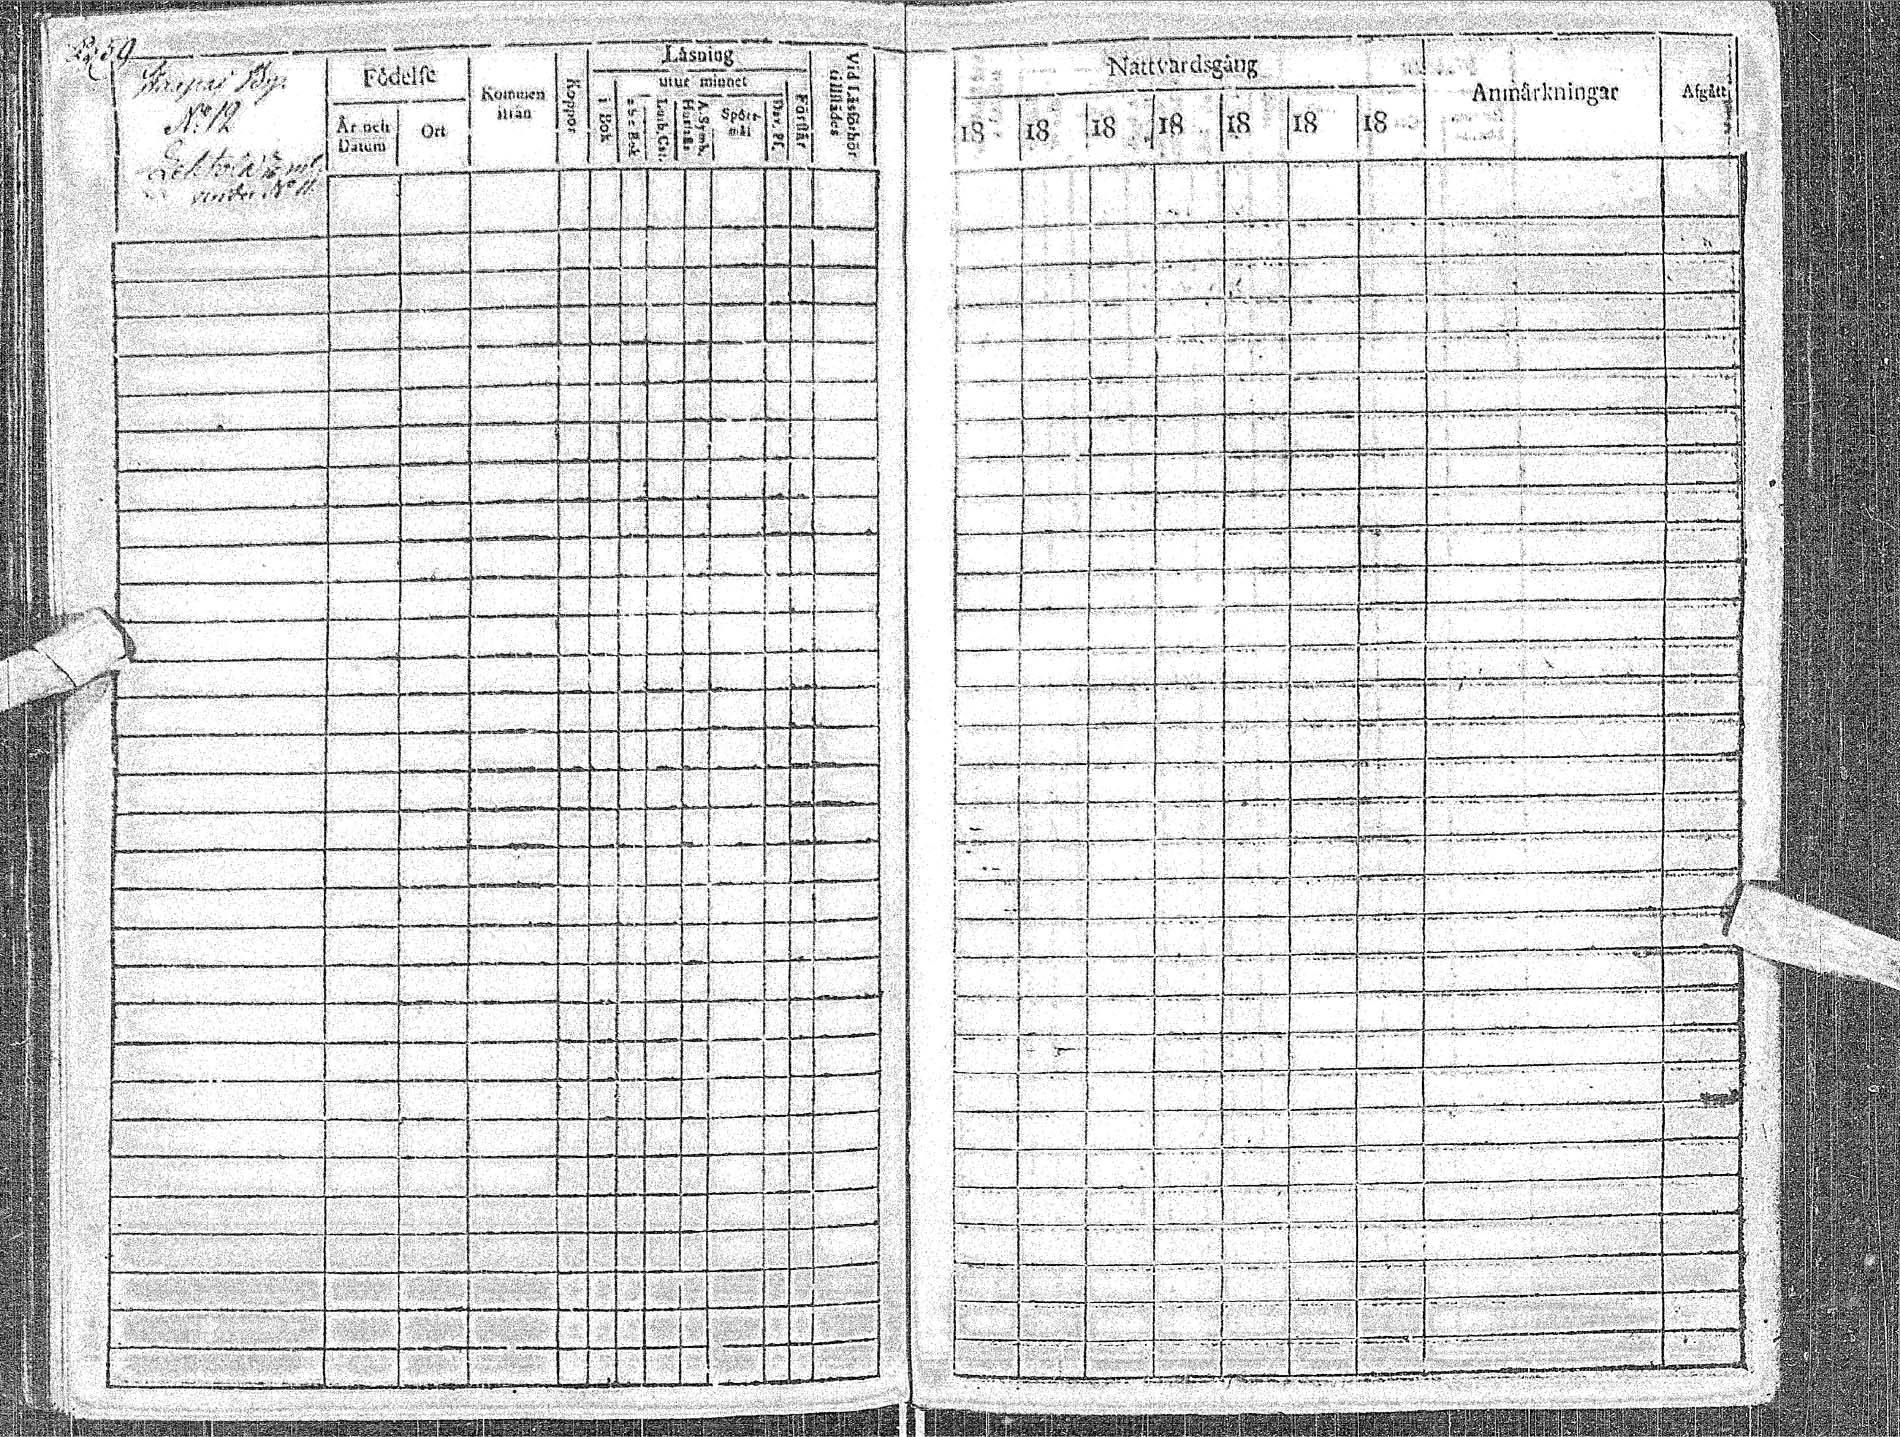 259
By.
No 12
under No 11.
Födelse
År och Datum
Ort
Kommen ifrån
Koppor
Läsning
i Bok
utur minnet
a b c Bok
Luth. Cat.
Hustafla
A. Symb.
Spörs-mål
Dav. Ps.
Förstår
Vid Läsförhör tillstädes
Nattvardsgång
18 18 18 18 18 18 18
Anmärkningar
Afgått